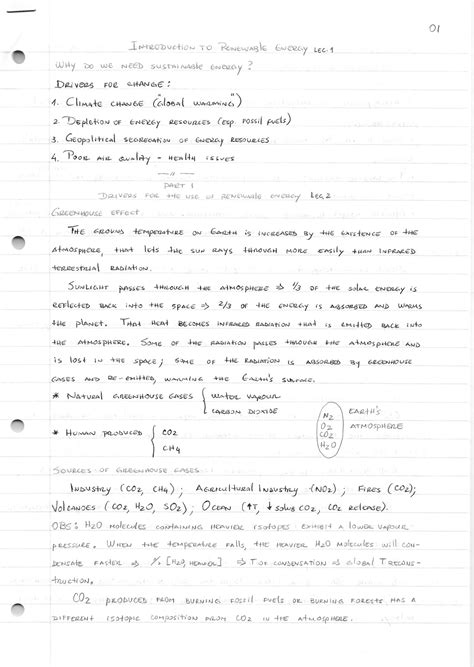 01
INTRODUCTION TO RENEWABLE ENERGY LEC.1
WHY DO WE NEED SUSTAINABLE ENERGY?
DRIVERS FOR CHANGE:
1. CLIMATE CHANGE ("GLOBAL WARMING")
2. DEPLETION OF ENERGY RESOURCES (ESP. FOSSIL FUELS)
3. GEOPOLITICAL SEGREGATION OF ENERGY RESOURCES
4. POOR AIR QUALITY - HEALTH ISSUES
PART 1
DRIVERS FOR THE USE OF RENEWABLE ENERGY LEC.2
GREENHOUSE EFFECT
THE GROUND TEMPERATURE ON EARTH IS INCREASED BY THE EXISTENCE OF THE
ATMOSPHERE, THAT LETS THE SUN RAYS THROUGH MORE EASILY THAN INFRARED
TERRESTRIAL RADIATION.
SUNLIGHT PASSES THROUGH THE ATMOSPHERE ⇒ 1/3 OF THE SOLAR ENERGY IS
REFLECTED BACK INTO THE SPACE ⇒ 2/3 OF THE ENERGY IS ABSORBED AND WARMS
THE PLANET. THAT HEAT BECOMES INFRARED RADIATION THAT IS EMITTED BACK INTO
THE ATMOSPHERE. SOME OF THE RADIATION PASSES THROUGH THE ATMOSPHERE AND
IS LOST IN THE SPACE; SOME OF THE RADIATION IS ABSORBED BY GREENHOUSE
GASES AND RE-EMITTED, WARMING THE EARTH'S SURFACE.
* NATURAL GREENHOUSE GASES { WATER VAPOUR
CARBON DIOXIDE
* HUMAN PRODUCED { CO2
CH4
N2
O2
CO2
H2O
EARTH'S
ATMOSPHERE
SOURCES OF GREENHOUSE GASES
INDUSTRY (CO2, CH4); AGRICULTURAL INDUSTRY (NO2); FIRES (CO2);
VOLCANOES (CO2, H2O, SO2); OCEAN (↑T, ↓ SOLUB CO2, CO2 RELEASE).
OBS: H2O MOLECULES CONTAINING HEAVIER ISOTOPES EXHIBIT A LOWER VAPOUR
PRESSURE. WHEN THE TEMPERATURE FALLS, THE HEAVIER H2O MOLECULES WILL CON-
DENSATE FASTER ⇒ % [H2O, HEAVIER] ⇒ T OF CONDENSATION ⇒ GLOBAL T RECONS-
TRUCTION.
CO2 PRODUCED FROM BURNING FOSSIL FUELS OR BURNING FORESTS HAS A
DIFFERENT ISOTOPIC COMPOSITION FROM CO2 IN THE ATMOSPHERE.